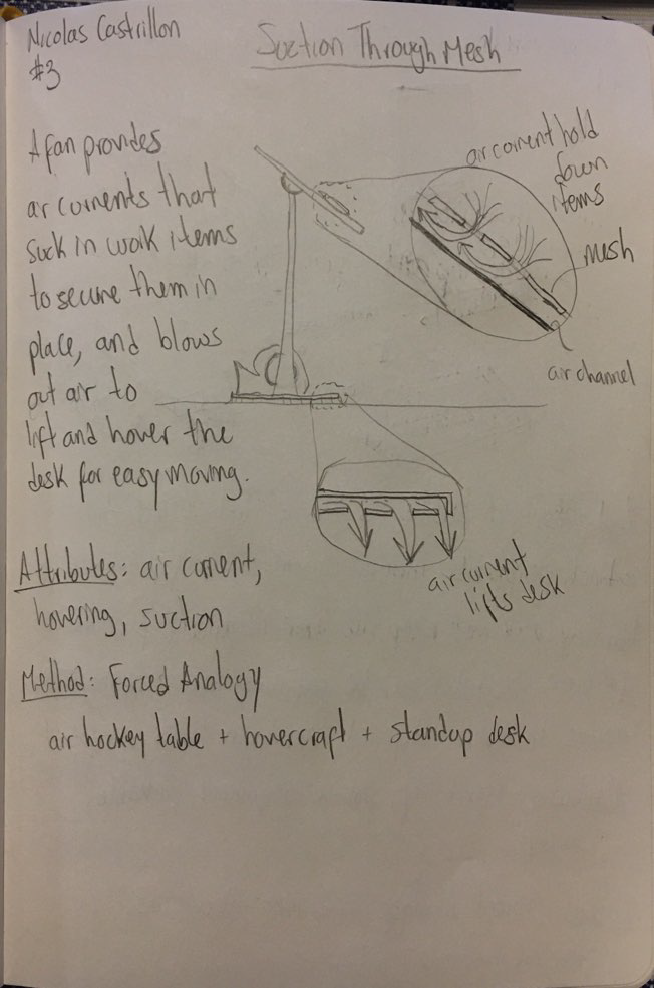 Nicolas Castrillon
#3
Suction Through Mesh
A fan provides
air currents that
suck in work items
to secure them in
place, and blows
out air to
lift and hover the
desk for easy moving.
air current hold
down
items
mesh
air channel
air current
lifts desk
Attributes: air current,
hovering, suction
Method: Forced Analogy
air hockey table + hovercraft + standup desk